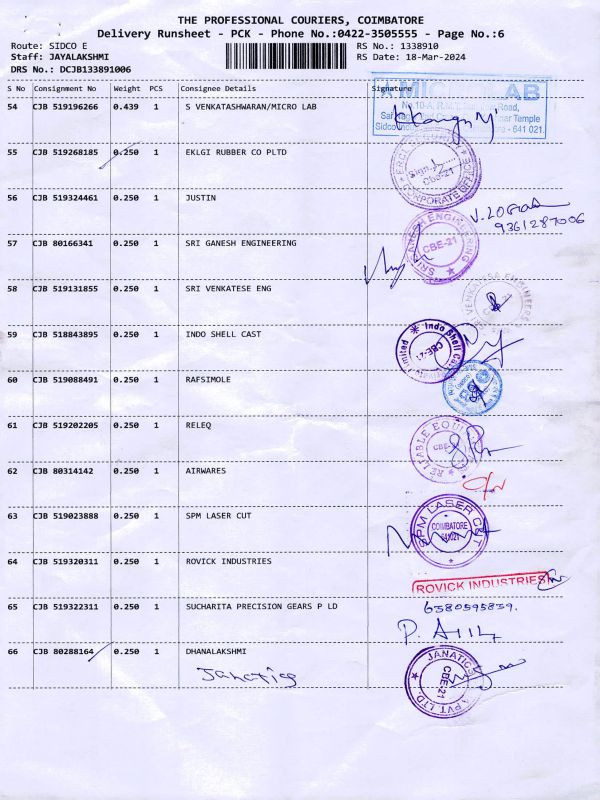 THE PROFESSIONAL COURIERS, COIMBATORE
Delivery Runsheet - PCK - Phone No.:0422-3505555 - Page No.:6
Route: SIDCO E
Staff: JAYALAKSHMI
DRS No.: DCJB133891006
RS No.: 1338910
RS Date: 18-Mar-2024
S No Consignment No Weight PCS Consignee Details Signature
54 CJB 519196266 0.439 1 S VENKATASHWARAN/MICRO LAB
MICROLAB
No.10-A, Road,
Temple
641 021.
55 CJB 519268185 0.250 1 EKLGI RUBBER CO PLTD
CORPORATE OFFICE
56 CJB 519324461 0.250 1 JUSTIN
9361287006
57 CJB 80166341 0.250 1 SRI GANESH ENGINEERING
SRI GANESH ENGINEERING
CBE-21
58 CJB 519131855 0.250 1 SRI VENKATESE ENG
VENKATESA ENGINEERS
59 CJB 518843895 0.250 1 INDO SHELL CAST
Indo Shell Cast
Limited
CBE-21
60 CJB 519088491 0.250 1 RAFSIMOLE
61 CJB 519202205 0.250 1 RELEQ
RELIABLE EQUI
CBE-
62 CJB 80314142 0.250 1 AIRWARES
63 CJB 519023888 0.250 1 SPM LASER CUT
SPM LASER CUT
COIMBATORE
641021
64 CJB 519320311 0.250 1 ROVICK INDUSTRIES
ROVICK INDUSTRIES
65 CJB 519322311 0.250 1 SUCHARITA PRECISION GEARS P LD
6380595839.
66 CJB 80288164 0.250 1 DHANALAKSHMI
Janatics
JANATICS
CBE-21
PVT LTD.